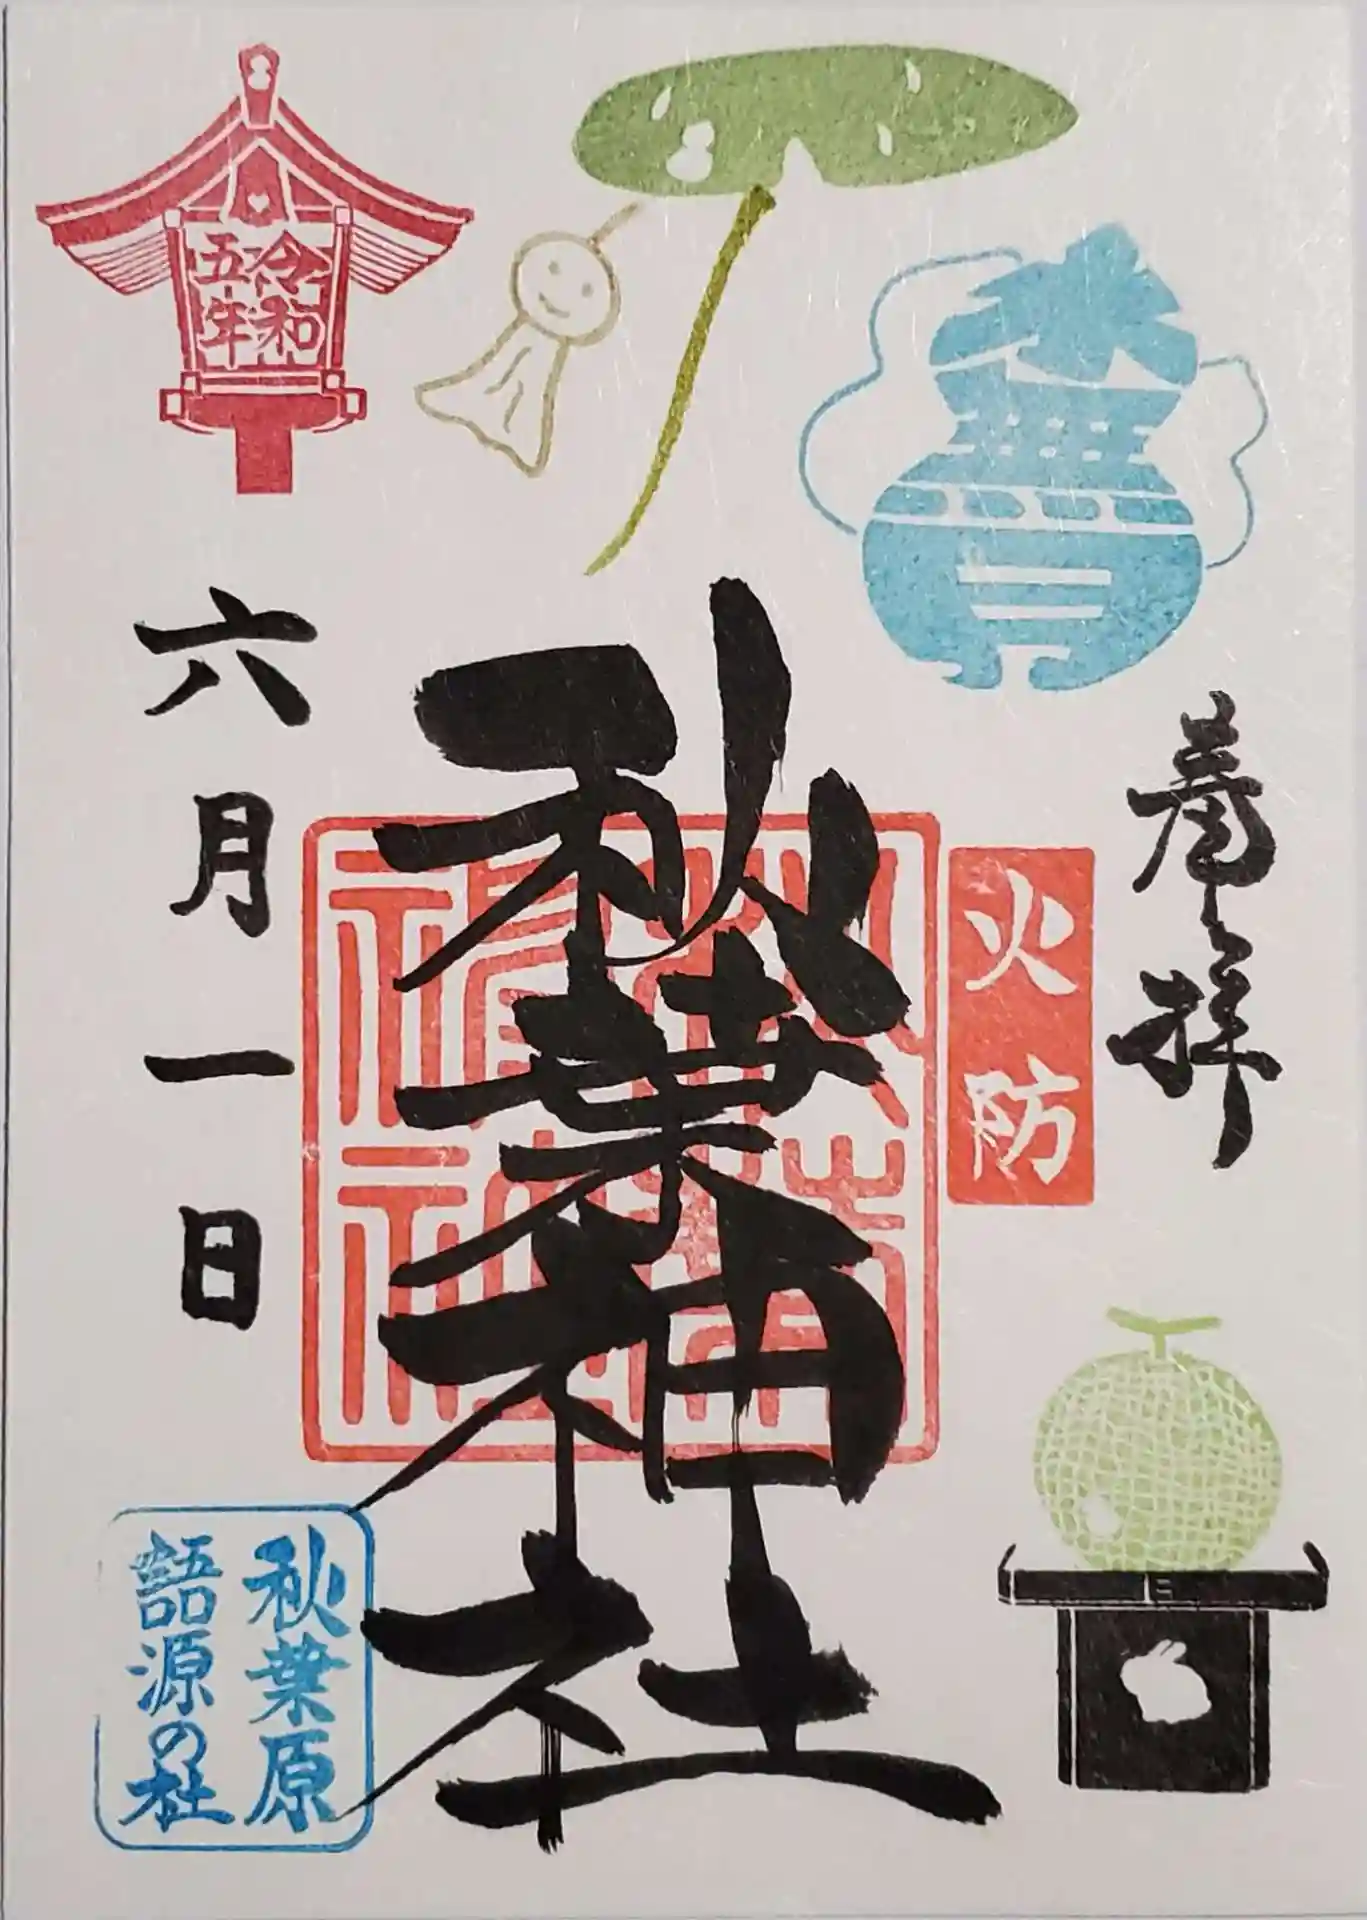 奉拝
火防
秋葉神社
令和
五年
六月一日
秋葉原
語源の社